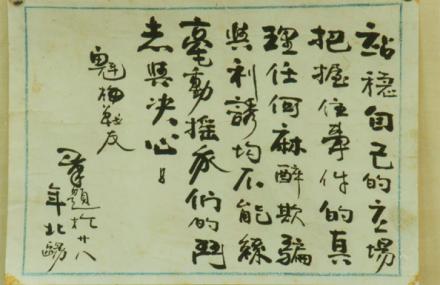 站穩自己的立場
把握住事件的真
理任何麻醉欺騙
與利誘均不能絲
毫動搖我們的鬥
志與决心！
魁梅戰友
題於廿八
年北嶋